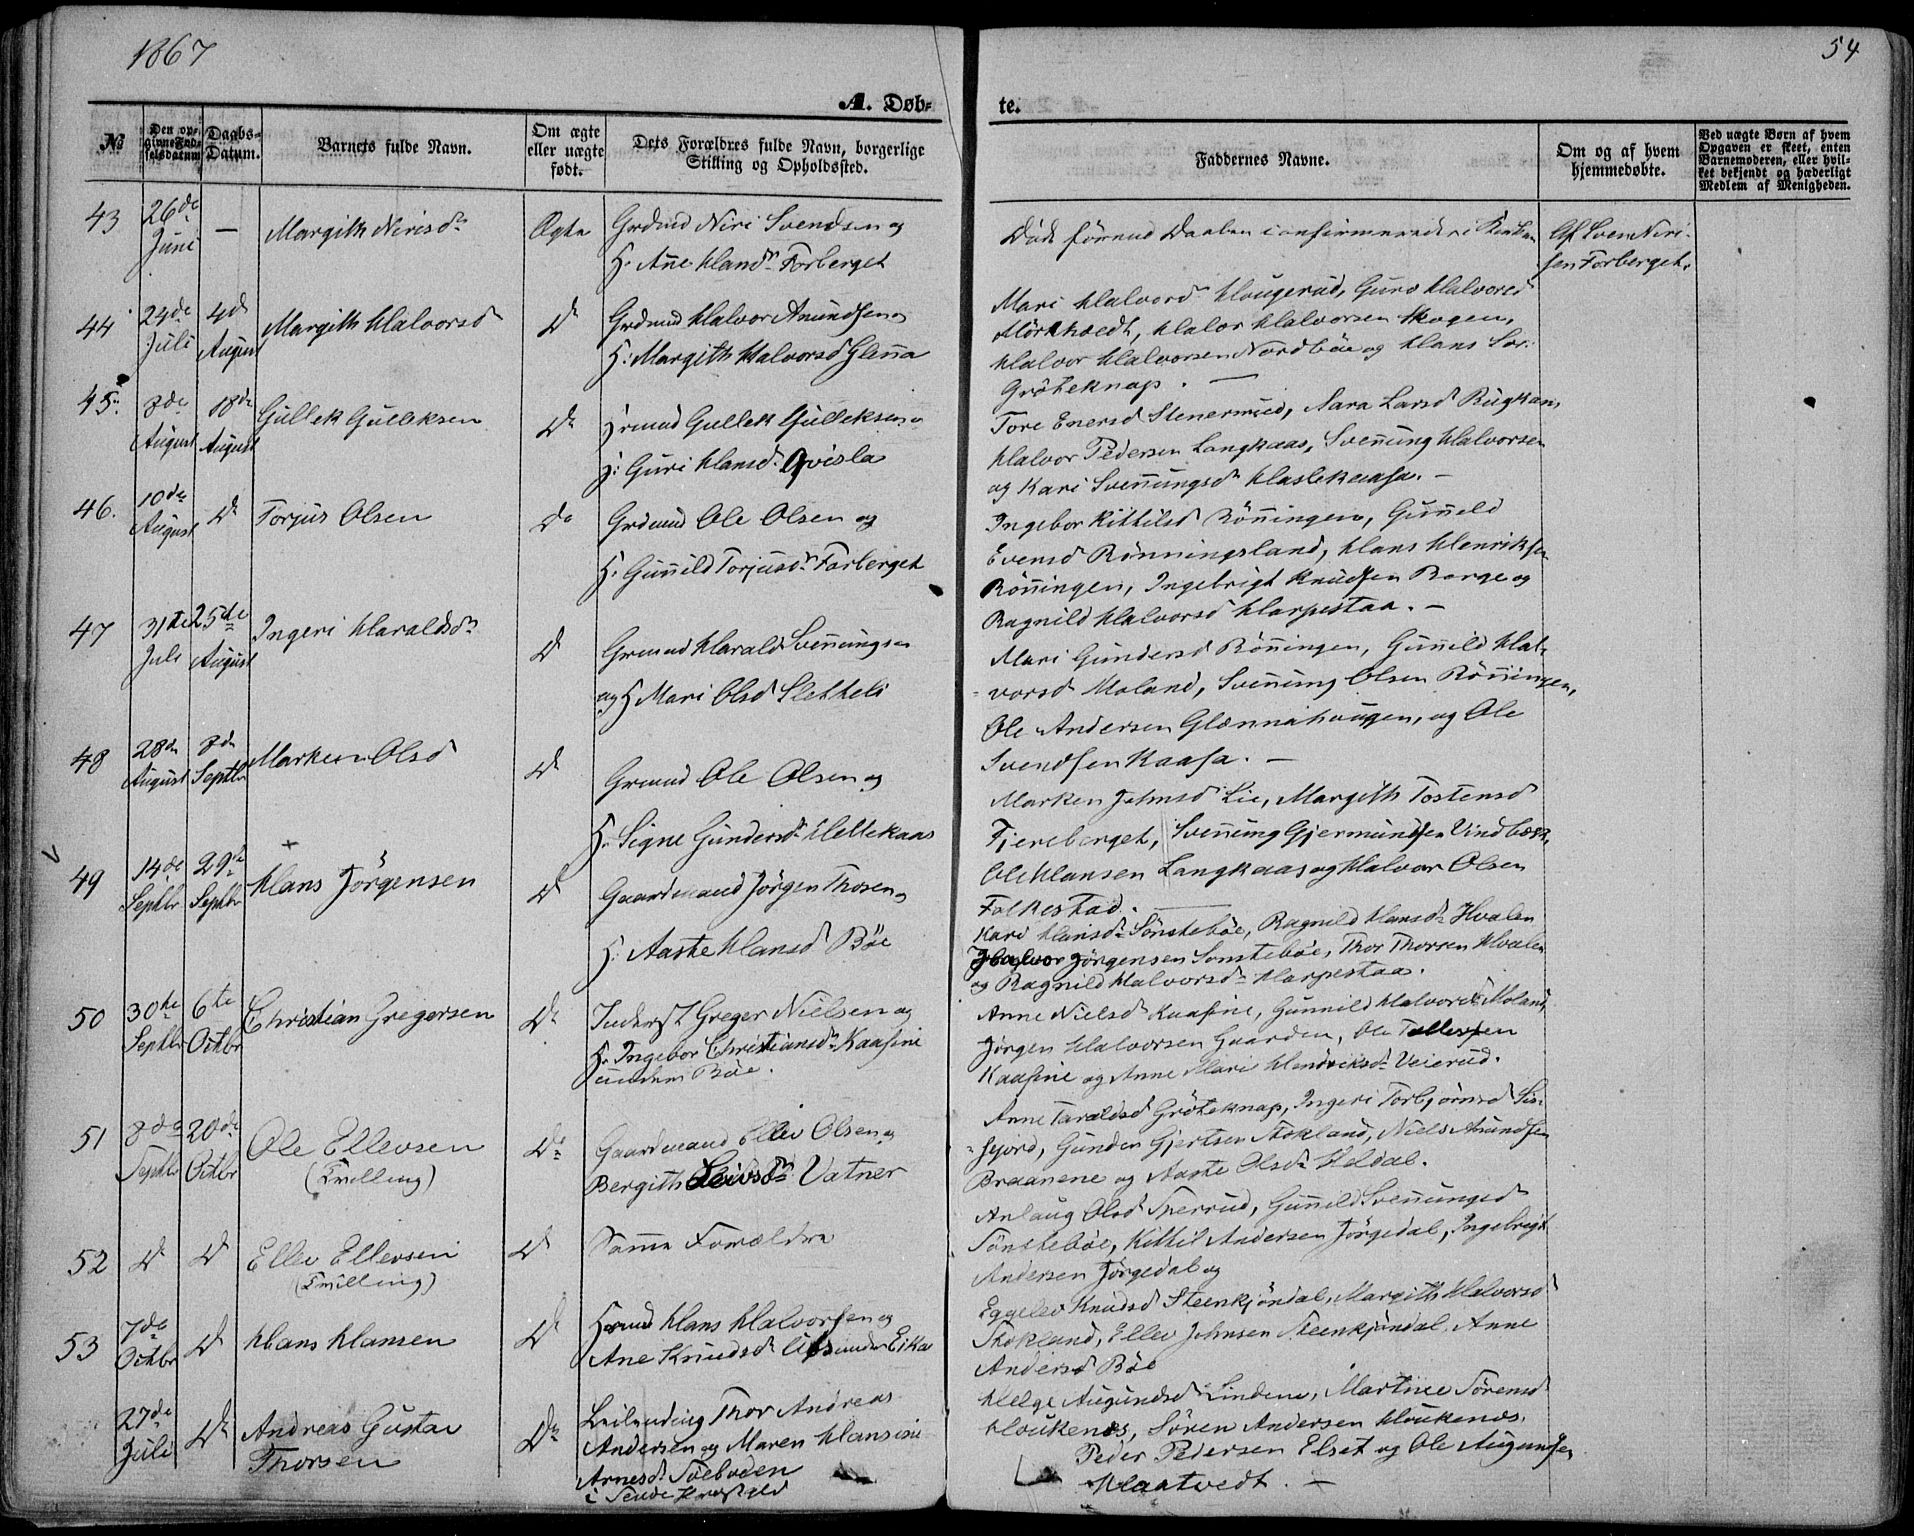 1867
54
A. Døb-
te.
No
Den op-
givne Fød-
selsdatum
Daabs-
Datum.
Barnets fulde Navn.
Om ægte
eller uægte
født.
Dets Forældres fulde Navn, borgerlige
Stilling og Opholdssted.
Faddernes Navne.
Om og af hvem
hjemmedøbte.
Ved uægte Børn af hvem
Opgaven er skeet, enten
Barnemoderen, eller hvil-
ket bekjendt og hæderligt
Medlem af Menigheden.
43
26de
Juni
—
Margith Nirisdr
Ægte
Grdmd Niri Svendsen og
H. Ane Hansdr Forberget
Død førend Daaben confirmeredes i Kirken
Af Sven Niri-
sen Forberget.
44
24de
Juli
4de
August
Margith Halvorsd
Do
Grdmd Halvor Amundsen og
H. Margith Halvorsd Glenna
Mari Halvord Hougerud, Guro Halvorsd
Mørkhvedt, Halvor Halvorsen Skogen,
Halvor Halvorsen Nordbøe og Hans
Grøteknap. —
45.
8de
August
18de
August
Gullek Gulleksen
Do
Hrmd Gullek Gulleksen og
H: Guri Hansd. Qvisla
Tore Enersd Stenerud, Sara Larsd
Halvor Pedersen Langkaas, Svennung Halvorsen
og Kari Svennungsdr Haslekaasa. —
46.
10de
August
Do
Torjus Olsen
Do
Grdmd Ole Olsen og
H. Gunild Torjusdr Forberget
Ingebor Kittilsd Rønningen, Gunnild
Evensd Rønningsland, Hans Henriksen
Rønningen, Ingebrigt Knudsen Borge og
Ragnild Halvorsd Harpestaa. —
47
31te
Juli
25de
August
Ingeri Haraldsdr
Do
Grmd Harald Svennungsen
og H Mari Olsd Sletteli
Mari Gundersd Rønningen, Gunnild Hal-
vorsd. Moland, Svennung Olsen Rønningen,
Ole Andersen Glænnahaugen, og Ole
Svendsen Kaasa. —
48
28de
August
8de
Septbr
Marken Olsd
Do
Grmd Ole Olsen og
H. Signe Gundersdr Hellekaas
Marken Johnsd Lie, Margith Tostensd
Fjereberget, Svennung Gjermundsen Vindbæk,
Ole Hansen Langkaas og Halvor Olsen
Folkestad. —
49
14de
Septbr
29de
Septbr
Hans Jørgensen
Do
Gaardmand Jørgen Thosen og
H. Aaste Hansd Bøe
Kari Hansdr Sønstebøe, Ragnild Hansdr Hvalen
Halvor Jørgensen Sønstebøe, Thor Thorsen Hvalen
og Ragnild Halvorsdr Harpestaa.
50
30te
Septbr
6te
Octbr
Christian Gregersen
Do
Inderst Greger Nielsen og
H. Ingebor Christiansdr Kaasine
under Bøe.
Anne Nielsd Kaasine, Gunnild Halvorsd Moland,
Jørgen Halvorsen Gaarden, Ole Tollefsen
Kaasine og Anne Mari Hendriksdr Veierud.
51
8de
Septbr
20de
Octbr
Ole Ellevsen
(Tvilling)
Do
Gaardmand Ellev Olsen og
Bergith Leivsdr Vatner
Anne Taraldsd Grøteknap, Ingeri Torbjørnsd Sis-
sejord, Gunder Gjertsen Stokland, Niels Amundsen
Braanene og Aaste Olsdr Heldal.
52
Do
Do
Ellev Ellevsen
(Tvilling)
Do
Samme Forældre
Anlaug Olsd Sherrud, Gunnild Svennungsd
Sønstebøe, Kittil Andersen Jørgedal, Ingebrigt
Andersen Jørgedal og
53
7de
Octbr
Do
Hans Hansen
Do
Hrmd Hans Halvorsen og
Ane Knudsd under Eika
Eggelev Knudsd Steenkjøndal, Margith Halvorsd
Stokland, Ellev Johnsen Steenkjøndal, Anne
Andersd Bøe
27de
Juli
Do
Andreas Gustav
Thorsen
Do
Leilending Thor Andreas
Andersen og Maren Hansine
Arnesdr Solboden
i
Helge Augundsd Lindem, Martine Sørensd
Houkenæs, Søren Andersen Houkenæs,
Peder Pedersen Elset og Ole Augundsen
Haatvedt. —